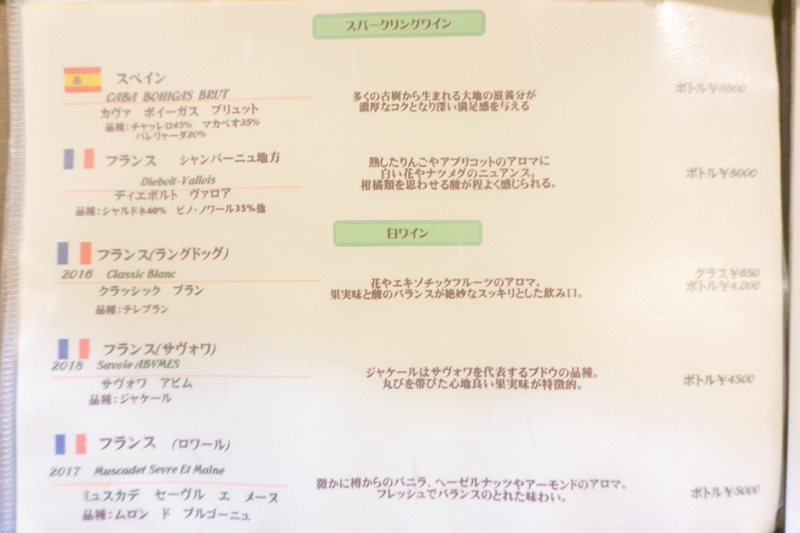 スパークリングワイン
スペイン
CABA BOHIGAS BRUT
カヴァ ボイーガス ブリュット
品種：チャッレロ45% マカベオ35%
パレリャーダ20%
多くの古樹から生まれる大地の滋養分が
濃厚なコクとなり深い満足感を与える
ボトル¥5500
フランス シャンパーニュ地方
Diebolt-Vallois
ディエボルト ヴァロア
品種：シャルドネ40% ピノ・ノワール35%他
熟したりんごやアプリコットのアロマに
白い花やナツメグのニュアンス。
柑橘類を思わせる酸が程よく感じられる。
ボトル¥8000
白ワイン
フランス(ラングドッグ)
2016 Classic Blanc
クラッシック ブラン
品種：テレブラン
花やエキゾチックフルーツのアロマ。
果実味と酸のバランスが絶妙なスッキリとした飲み口。
グラス¥650
ボトル¥4,000
フランス(サヴォワ)
2018 Savoie ABYMES
サヴォワ アビム
品種：ジャケール
ジャケールはサヴォワを代表するブドウの品種。
丸びを帯びた心地良い果実味が特徴的。
ボトル¥4500
フランス (ロワール)
2017 Muscadet Sevre Et Maine
ミュスカデ セーヴル エ メーヌ
品種：ムロン ド ブルゴーニュ
微かに樽からのバニラ、ヘーゼルナッツやアーモンドのアロマ。
フレッシュでバランスのとれた味わい。
ボトル¥5000